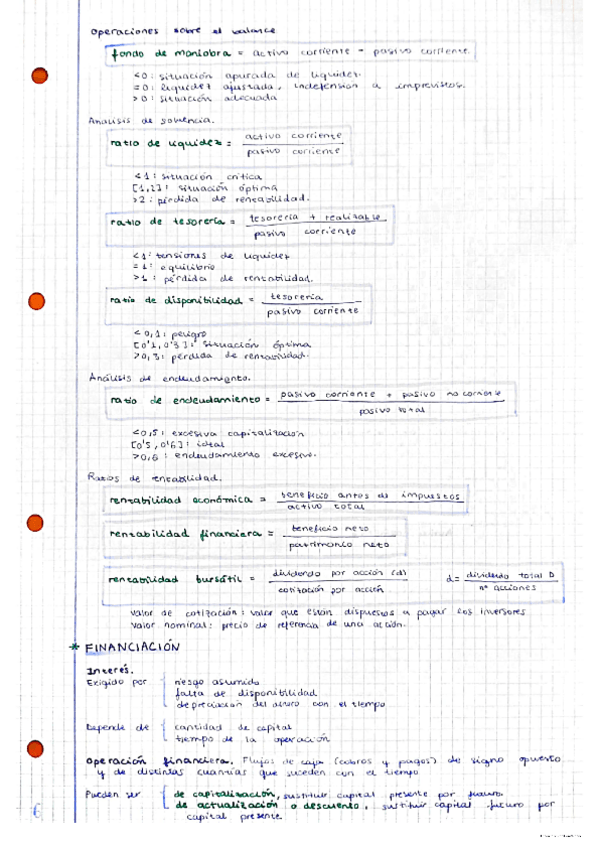 Operaciones sobre el balance
fondo de maniobra = activo corriente - pasivo corriente
<0: situación apurada de liquidez.
=0: liquidez ajustada, indefensión a imprevistos.
>0: situación adecuada
Análisis de solvencia.
ratio de liquidez = activo corriente / pasivo corriente
<1: situación crítica
[1,2]: situación óptima
>2: pérdida de rentabilidad.
ratio de tesorería = tesorería + realizable / pasivo corriente
<1: tensiones de liquidez
=1: equilibrio
>1: pérdida de rentabilidad.
ratio de disponibilidad = tesorería / pasivo corriente
<0,1: peligro
[0'1, 0'3]: situación óptima
>0,3: pérdida de rentabilidad.
Análisis de endeudamiento.
ratio de endeudamiento = pasivo corriente + pasivo no corriente / pasivo total
<0,5: excesiva capitalización
[0'5, 0'6]: ideal
>0,6: endeudamiento excesivo.
Ratios de rentabilidad.
rentabilidad económica = beneficio antes de impuestos / activo total
rentabilidad financiera = beneficio neto / patrimonio neto
rentabilidad bursátil = dividendo por acción (d) / cotización por acción d = dividendo total D / nº acciones
Valor de cotización: valor que están dispuestos a pagar los inversores
Valor nominal: precio de referencia de una acción.
* FINANCIACIÓN
Interés.
Exigido por riesgo asumido
falta de disponibilidad
depreciación del dinero con el tiempo
Depende de cantidad de capital
tiempo de la operación
Operación financiera. Flujos de caja (cobros y pagos) de signo opuesto
y de distintas cuantías que suceden con el tiempo
Pueden ser de capitalización, sustituir capital presente por futuro.
de actualización o descuento, sustituir capital futuro por
capital presente.
6